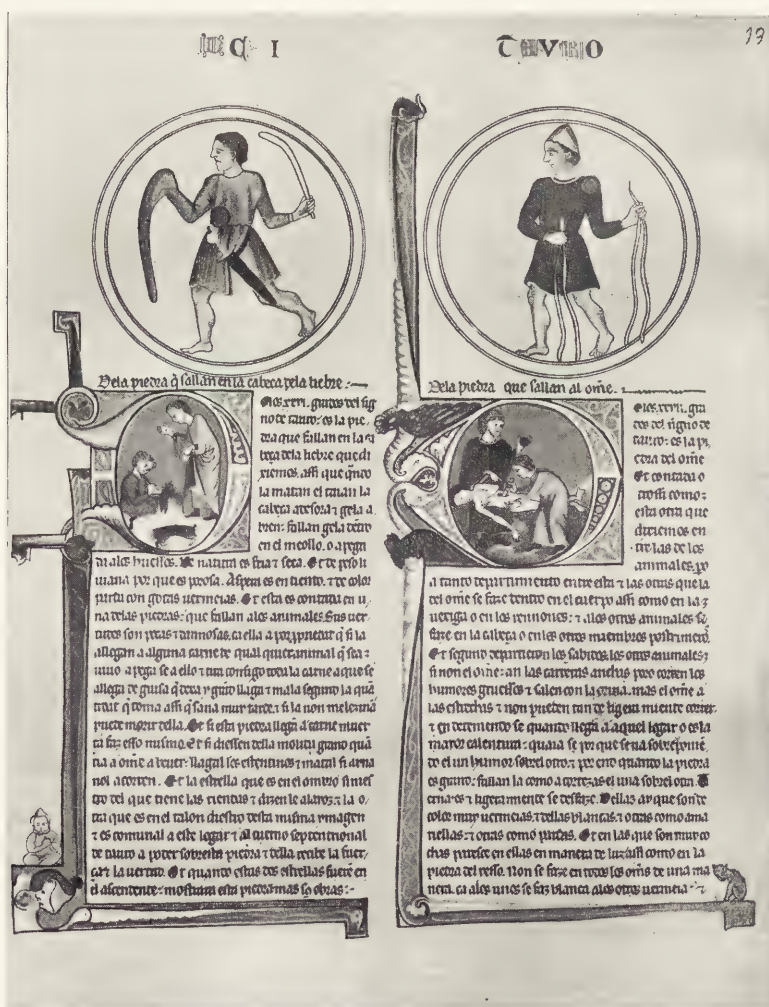 C I
T V O
Dela piedra q̃ fallan en la cabeça dela liebre :
no de tauro: es la pie,
dra que fallan en la ca
beça dela liebre que di
xiemos. assi que q̃ndo
la matan el taian la
bien: fallan gela
en el meollo. o apega
da alos huessos. De natura es fria τ seca. Et de
por que es porosa. Aspera es en tiento. τ de color
parda con gotas uermeias. Et esta es contada en u,
na delas piedras: que fallan alos animales. Sus uer
tudes son τ dannosas. ca ella a por q̃ si la
allegan a alguna carne de qual quier animal q̃ sea:
uiuo apega se a ello τ tira consigo toda la carne a que se
allega de guisa q̃ τ llaga τ mala segund la quã
tidat q̃ toma assi q̃ sana muy tarde. τ si la non melezina
puede morir della. Et si esta piedra llega a carne muer
ta faz esso mismo. Et si diessen della grano quã
tia a omẽ a beuer. llagal los estentinos τ matal si ayna
nol acorren. Et la estrella que es en el ombro sinies
tro del que tiene las riendas τ dizen le τ la o,
tra que es en el talon diestro desta misma ymagen
τ es comunal a este logar τ al cuerno septentrional
de tauro a poder sobresta piedra τ della recibe la fuer,
ça τ la uertud. Et quando estas dos estrellas fuere en
el ascendente: mostrara esta piedra mas sꝯ obras :
Dela piedra que fallan al omẽ.
dos del signo de
tauro: es la pi,
edra del omẽ
Et contada o
trossi como:
esta otra que
dixiemos en
tre las de los
animales. po
a tanto departimiento entre esta τ las otras que la
del omẽ se faze dentro en el cuerpo assi como en la
uexiga o en los rennones: τ alos otros animales se
faze en la cabeça o en los otros miembros
Et segund departieron los sabidos. los otros animales:
si non el omẽ: an las carreras anchas pero corren los
humores gruessos τ salen con la orina. mas el omẽ a
las estrechas τ non pueden tan de ligera miente correr.
τ en quando llega a aquel logar o es la
mayor calentura: quaia se por que se ua
do el un humor sobrel otro. τ por end quando la piedra
es grand: fallan la como a cortezas el una sobrel otra.
τ ligera miente se desfaze. Dellas ay que son de
color muy uermeias. τ dellas blancas. τ otras como ama
riellas. τ otras como pardas. Et en las que son mucho
en ellas en manera de luz assi como en la
piedra del Non se faze en todos los omẽs de una ma
nera. ca alos unos se faz blanca. alos otros uermeia τ